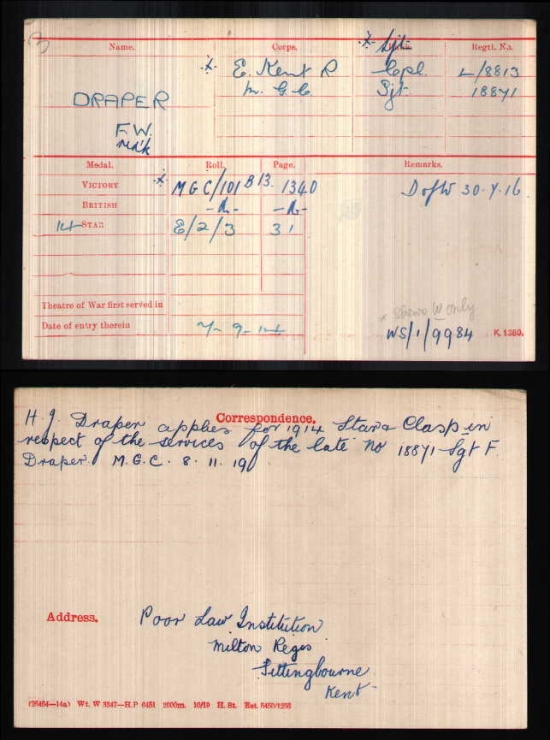 Name. Corps. Rank Regtl. No.
* Sjt.
* E. Kent R Cpl. L/8813
M.G.C. Sjt. 18871
DRAPER
F.W.
Medal. Roll. Page. Remarks.
VICTORY * MGC/101B13. 1340 D of W 30.7.16
BRITISH -do- -do-
14 STAR E/2/3 31
Theatre of War first served in
* Shews W only
Date of entry therein 7-9-14
WS/1/9984 K. 1380.
Correspondence.
H J. Draper applies for 1914 Star & Clasp in
respect of the services of the late No 18871 Sgt F.
Draper. M.G.C. 8.11.19
Address. Poor Law Institution
Milton Regis
Sittingbourne
Kent
(26464—14a) Wt. W 3347—H.P. 6451 2000m. 10/19 H. St. Est. 5450/1293